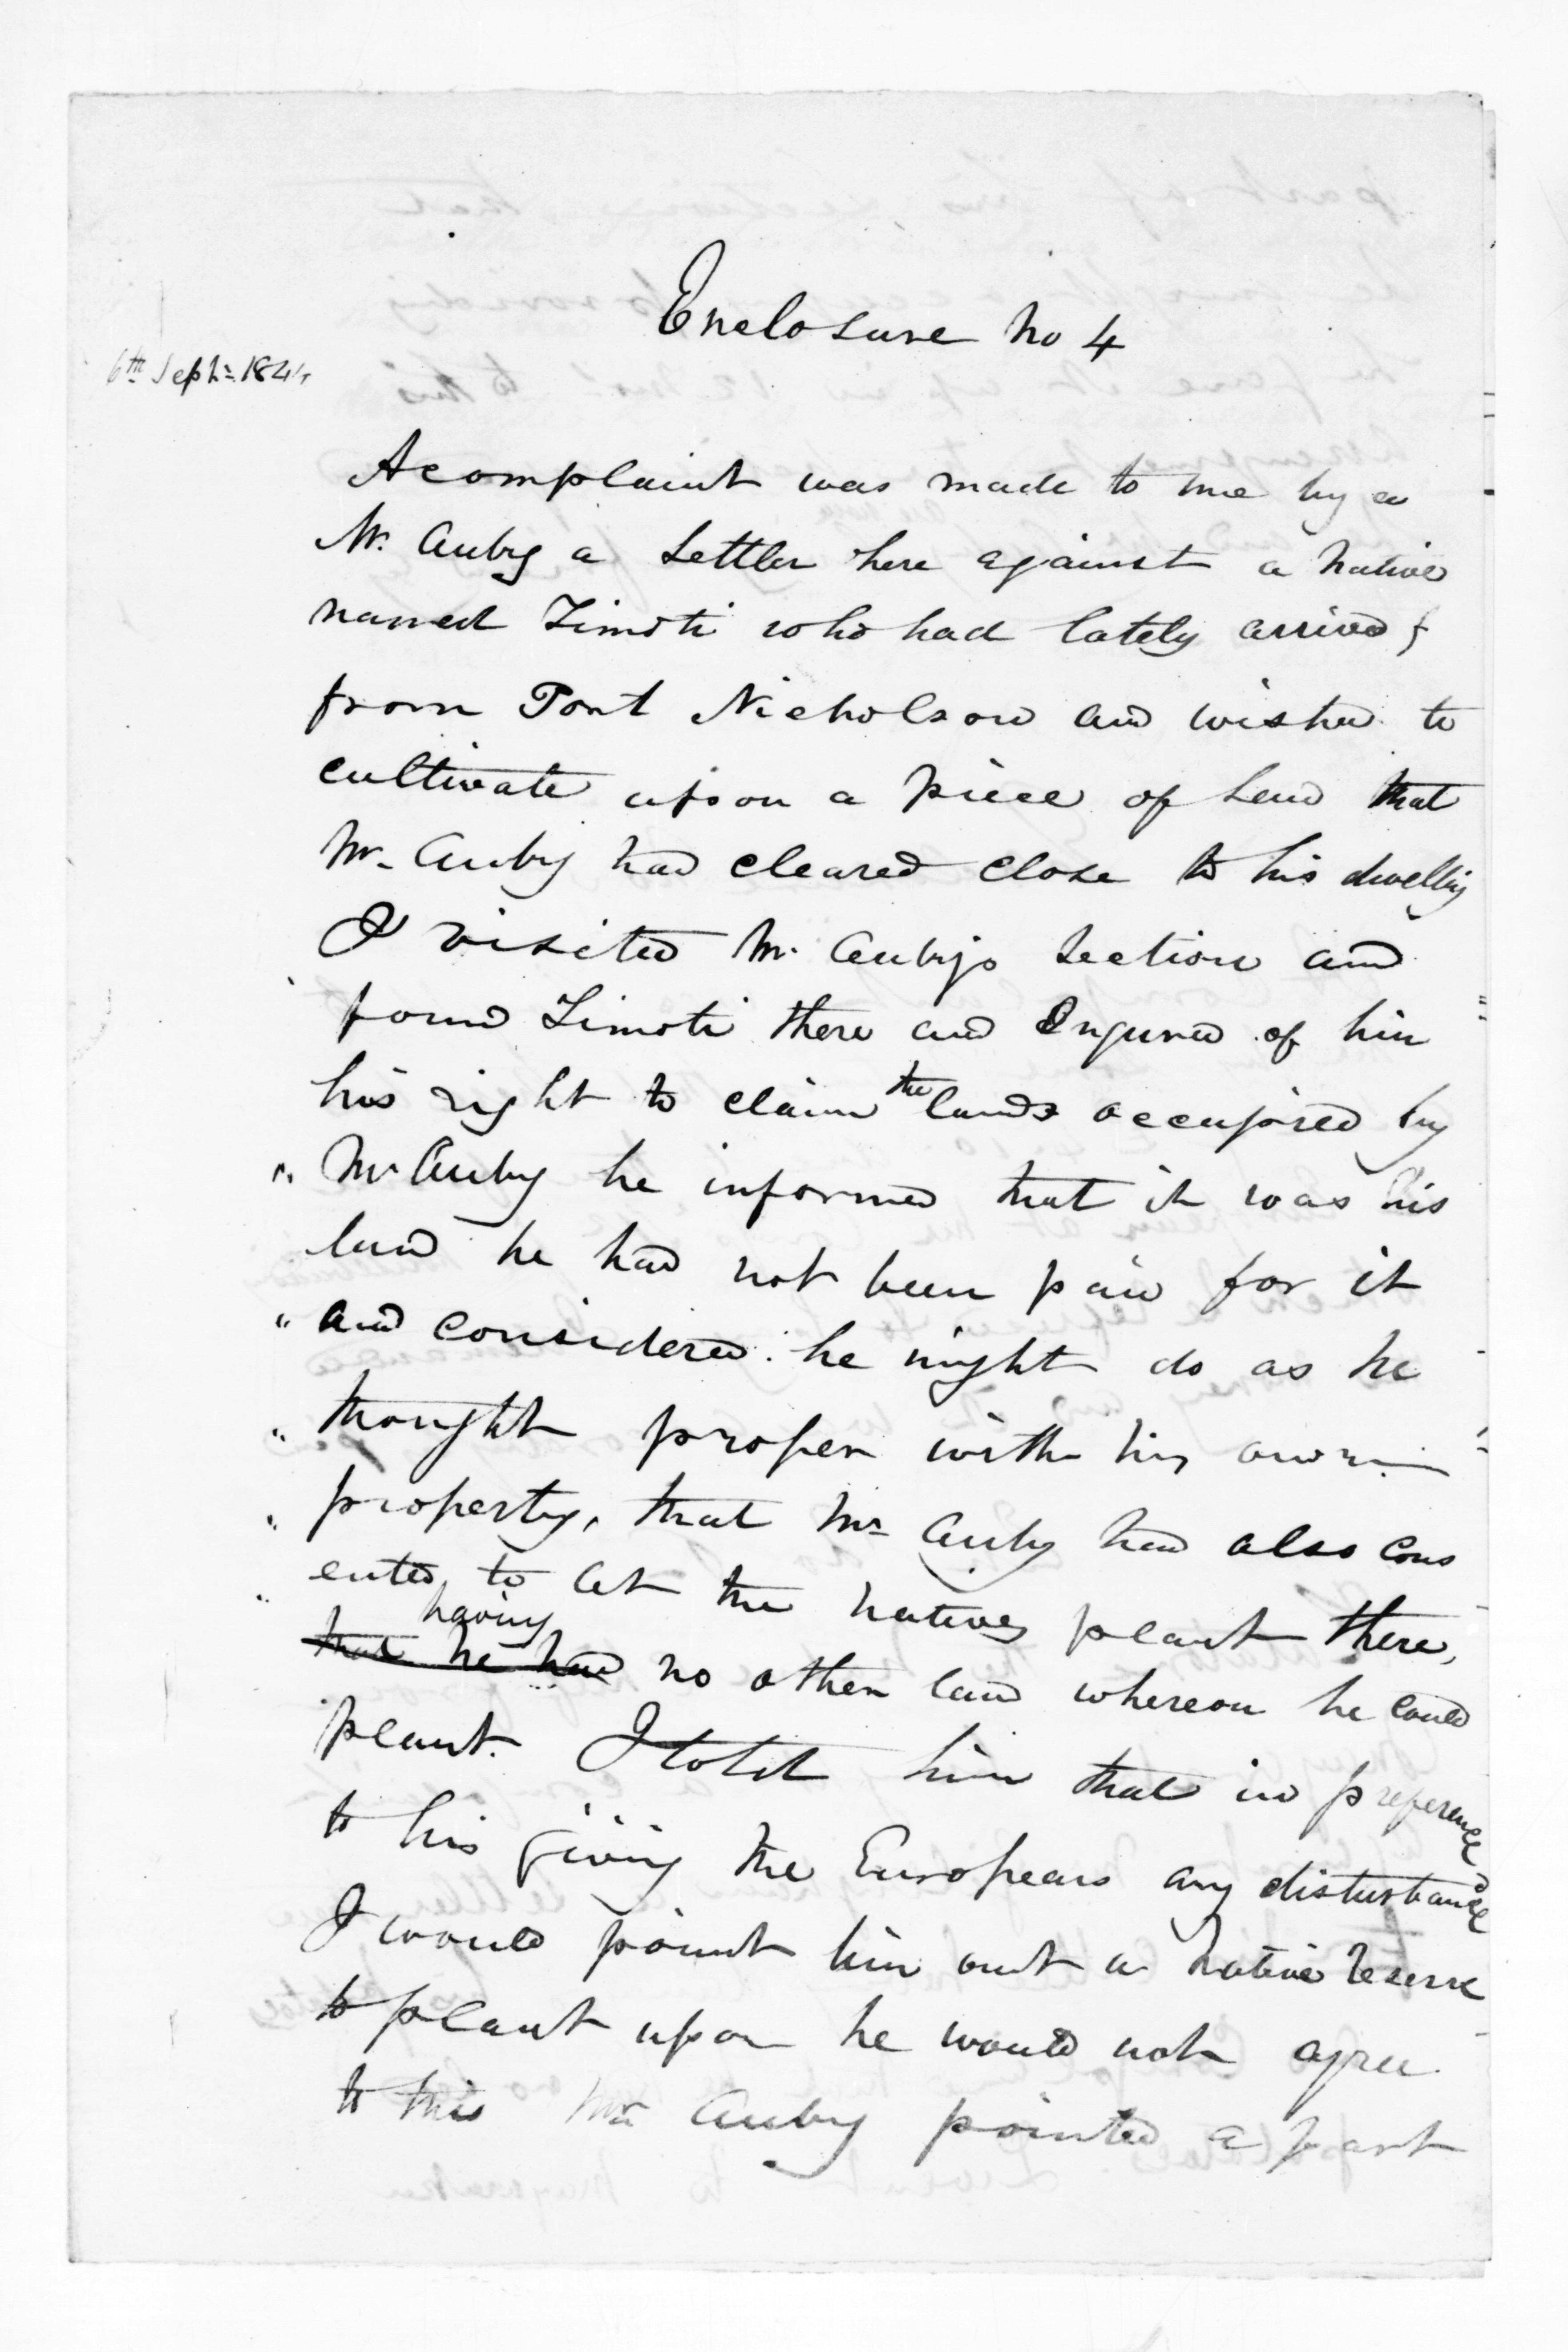 Enclosure No 4
6th Septr. 1844
A complaint was made to me by a
Mr. Auby a Settler here against a Native
named Timoti who had lately arrived
from Port Nicholson and wished to
cultivate upon a piece of Land that
Mr. Auby had cleared close to his dwelling
I visited Mr. Aubys Section and
found Timoti there and Enquired of him
his right to claim the lands occupied by
" Mr. Auby he informed that it was his
land he had not been paid for it
" and considered he might do as he
" thought proper with his own
" property, that Mr. Auby had also cons
" ented to let the natives plant there,
having
that he had no other land whereon he could
plant. I told him that in preference
to his giving the Europeans any disturbance
I would point him out a Native Reserve
to plant upon he would not agree
to this Mr. Auby pointed a part